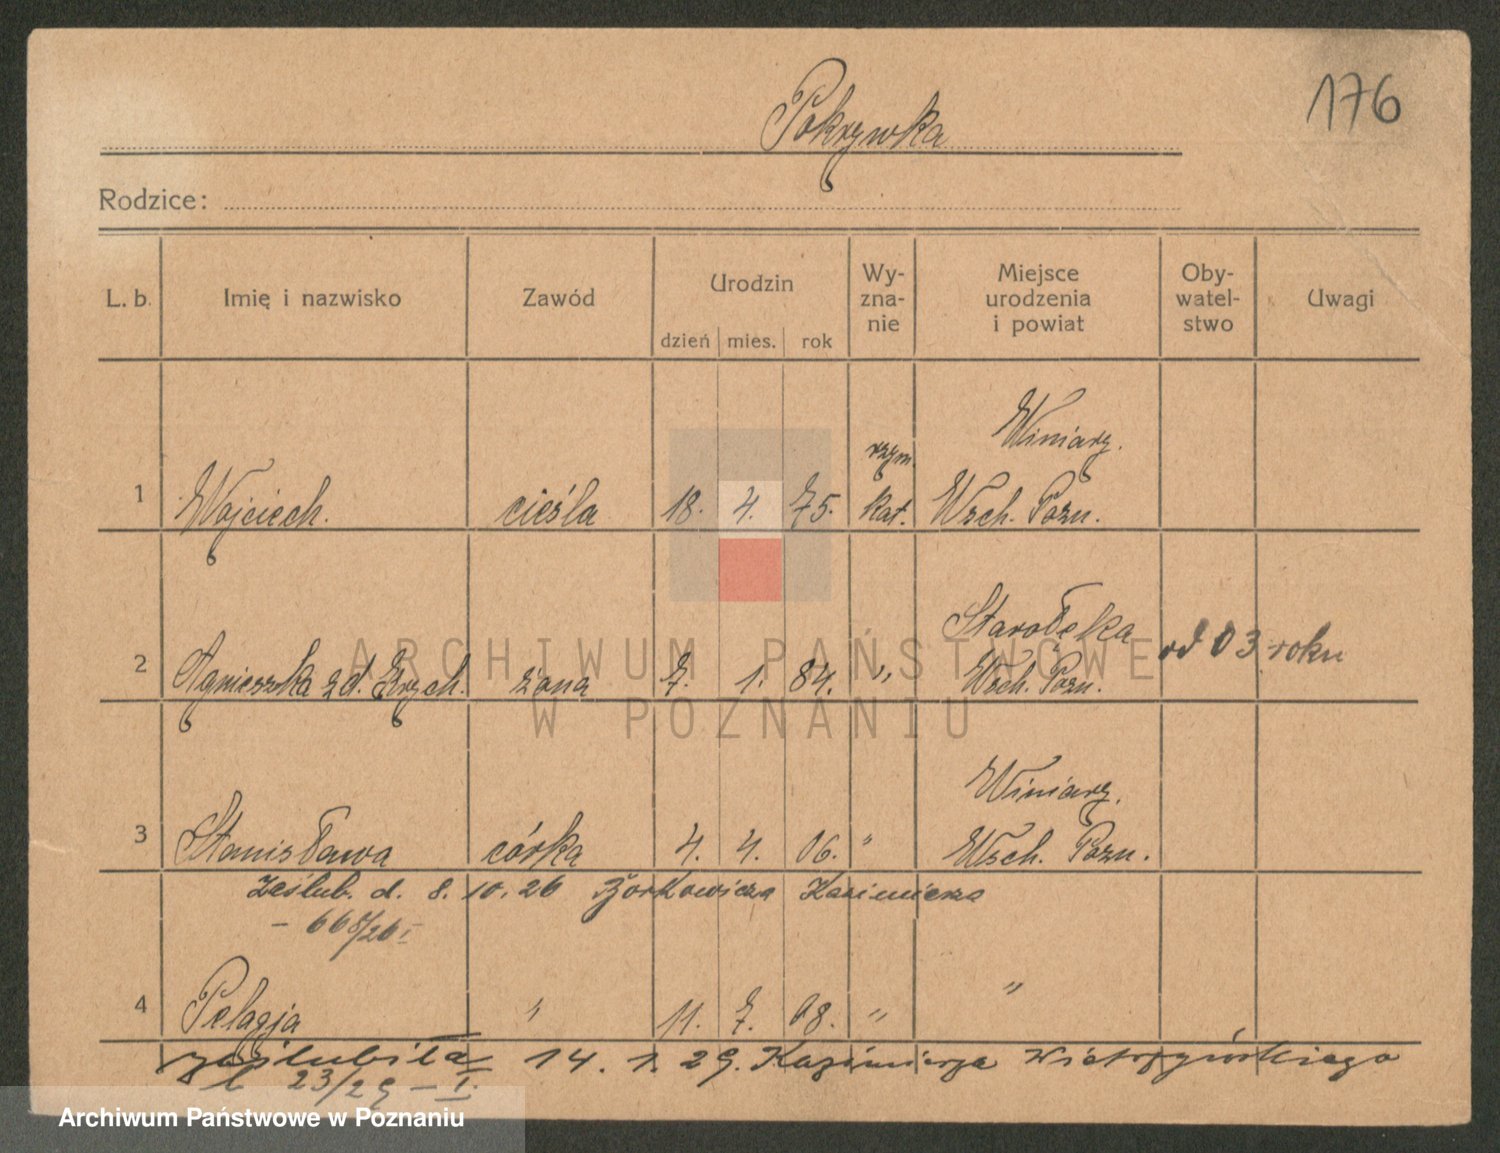 176
Pokrzywka
Rodzice:
L. b. Imię i nazwisko Zawód Urodzin dzień mies. rok Wy-zna-nie Miejsce urodzenia i powiat Oby-watel-stwo Uwagi
Winiary.
rzym.
1 Wojciech. cieśla 18. 4. 75. kat. Wsch. Pozn.
Starołęka
od 03 roku
2 Agnieszka zd. żona 7. 1. 84. " Wsch. Pozn.
Winiary.
3 Stanisława córka 4. 4. 06. " Wsch. Pozn.
Zaślub. d. 8. 10. 26 Kazimierza
- 668/26 I
4 Pelagja " 11. 7. 08. " "
zaślubiła 14. 1. 29. Kazimierza
23/29 - I.
ARCHIWUM PAŃSTWOWE
W POZNANIU
Archiwum Państwowe w Poznaniu